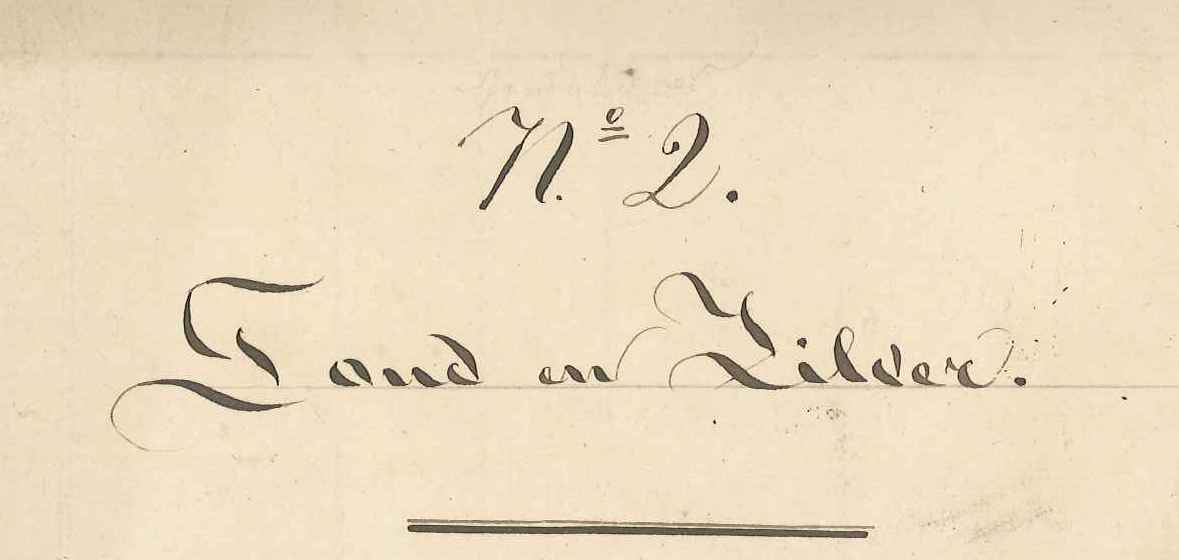 N.º 2.
Goud en Zilver.